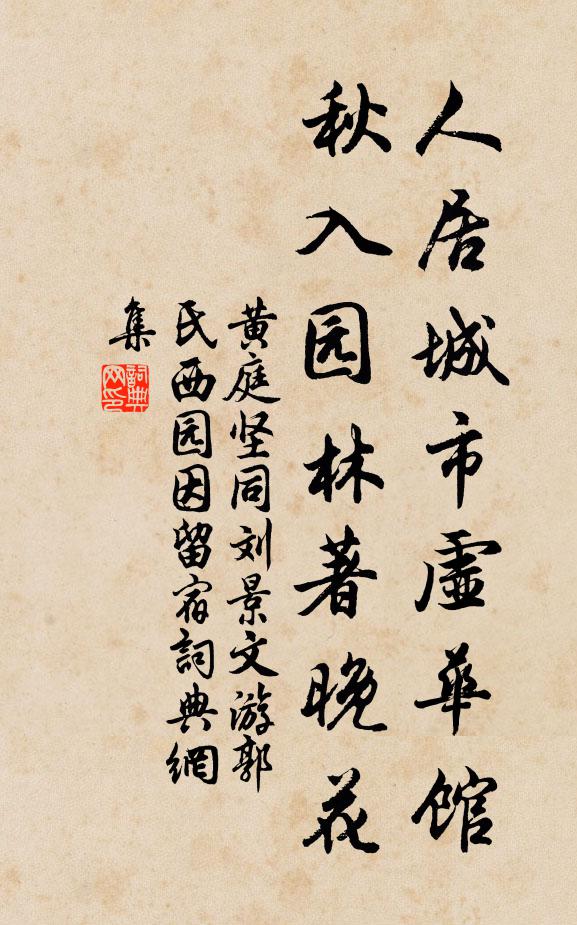 人居城市虚华馆
秋入园林著晚花
黄庭坚同刘景文游郭
氏西园因留宿詞典網
集
詞典網印